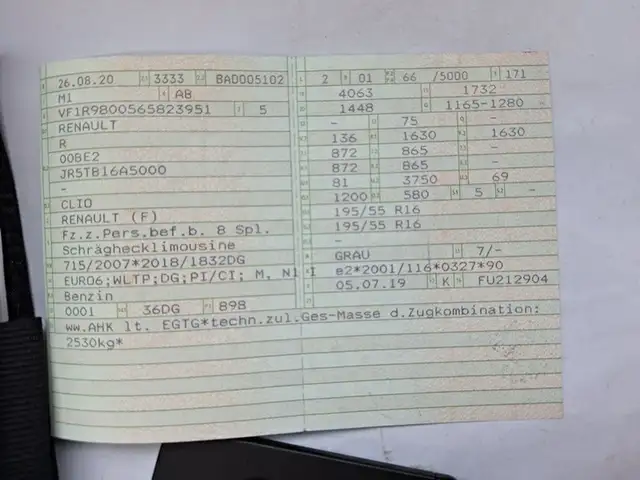 26.08.20 3333 BAD005102
M1 AB
VF1R9800565823951 5
RENAULT
R
00BE2
JR5TB16A5000
-
CLIO
RENAULT (F)
Fz.z.Pers.bef.b. 8 Spl.
Schräghecklimousine
715/2007*2018/1832DG
EURO6;WLTP;DG;PI/CI; M, N1 I
Benzin
0001 36DG 898
ww.AHK lt. EGTG*techn.zul.Ges-Masse d.Zugkombination:
2530kg*
2 01 66 /5000 171
4063 1732
1448 1165-1280
- 75 -
136 1630 1630
872 865 -
872 865 -
81 3750 69
1200 580 5 -
195/55 R16
195/55 R16
-
GRAU 7/-
e2*2001/116*0327*90
05.07.19 K FU212904